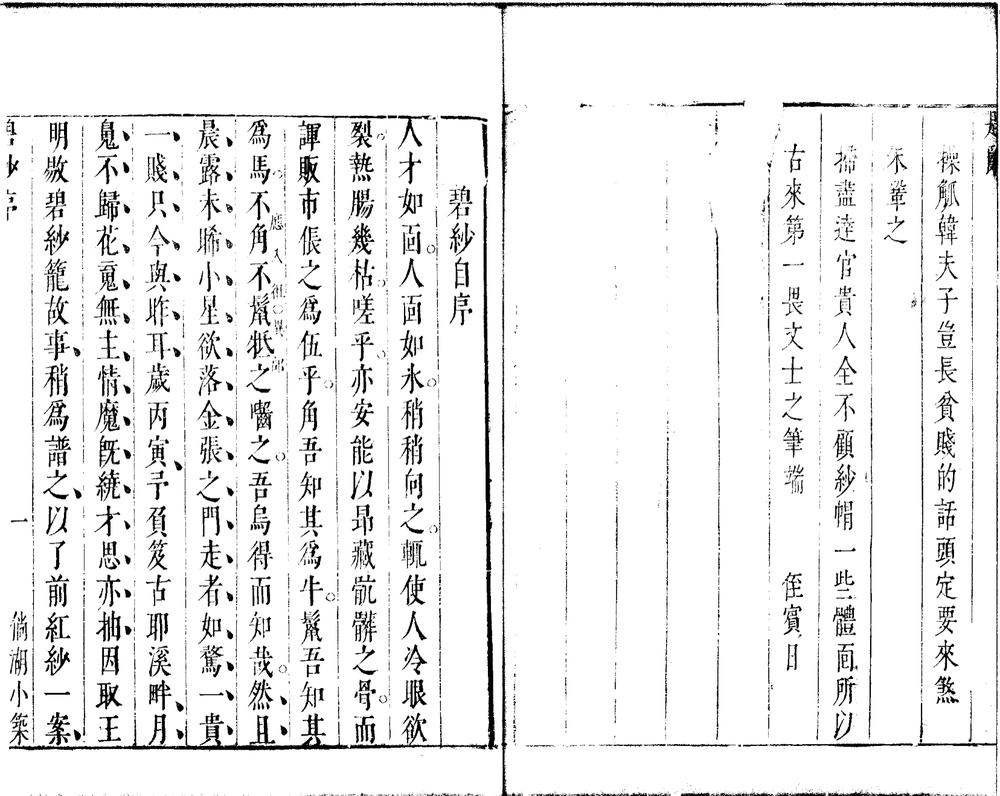 題辭
操觚韓夫子豈長貧賤的話頭定要來煞
末輩之
掃盡達官貴人全不顧紗帽一些體面所以
古來第一畏文士之筆端　　侄賓日
碧紗自序
人才如面人面如氷稍稍向之輒使人冷眼欲
裂熱腸幾枯嗟乎亦安能以昂藏骯髒之骨而
諢販市倀之爲伍乎角吾知其爲牛鬣吾知其
爲馬不角不鬣牴之囓之吾烏得而知哉然且
應入
晨露未晞小星欲落金張之門走者如驚一貴
一賤只今與昨耳歲丙寅予負笈古耶溪畔月
鬼不歸花竟無主情魔旣繞才思亦抽因取王
明敭碧紗籠故事稍爲譜之以了前紅紗一案
碧紗序　一　倘湖小築